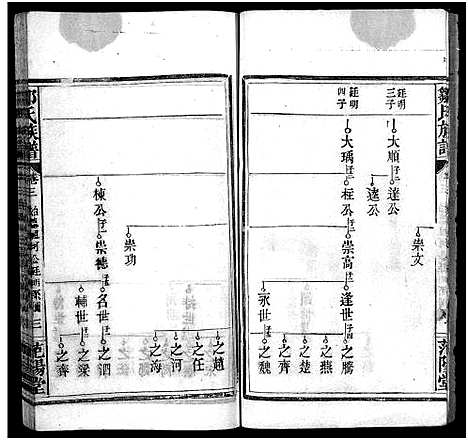 鄒氏族譜
范陽堂
廷明
三子
大順
達公
逵公
崇文
廷明
四子
大瑀
柱公
崇高
逢世
之勝
之燕
之楚
之齊
永世
之魏
崇功
棟公
崇德
名世
之泗
之梁
輔世
之齊
之趙
之任
之河
之海
鄒氏族譜
卷三
三
范陽堂